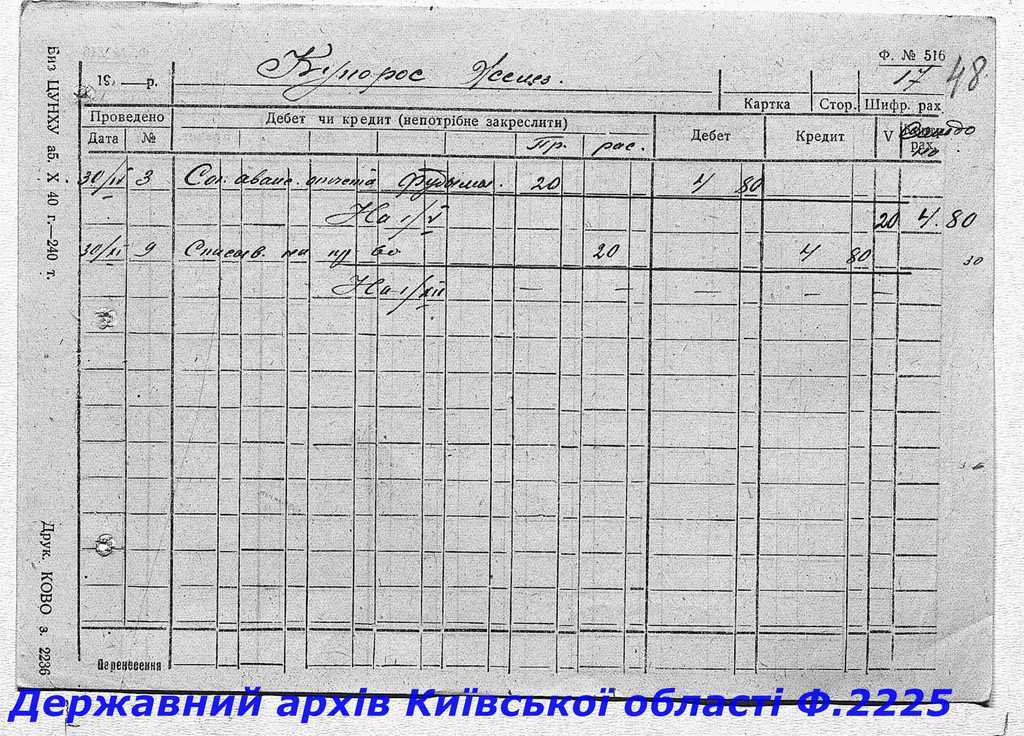 Ф. № 516
Купорос Желез.
17 48
19 — р.
Картка Стор. Шифр. рах
Проведено Дебет чи кредит (непотрібне закреслити) Дебет Кредит V рах.
Дата № Пр. рас.
30/IV 3 Сог. аванс. отчета 20 4 80
На 1/V 20 4.80
30/XI 9 Списыв. на пр-во 20 4 80
30
На 1/XII — — — — —
Перенесення
Биз ЦУНХУ аб. X 40 г.—240 т.
Друк. КОВО з. 2236
Державний архів Київської області Ф.2225